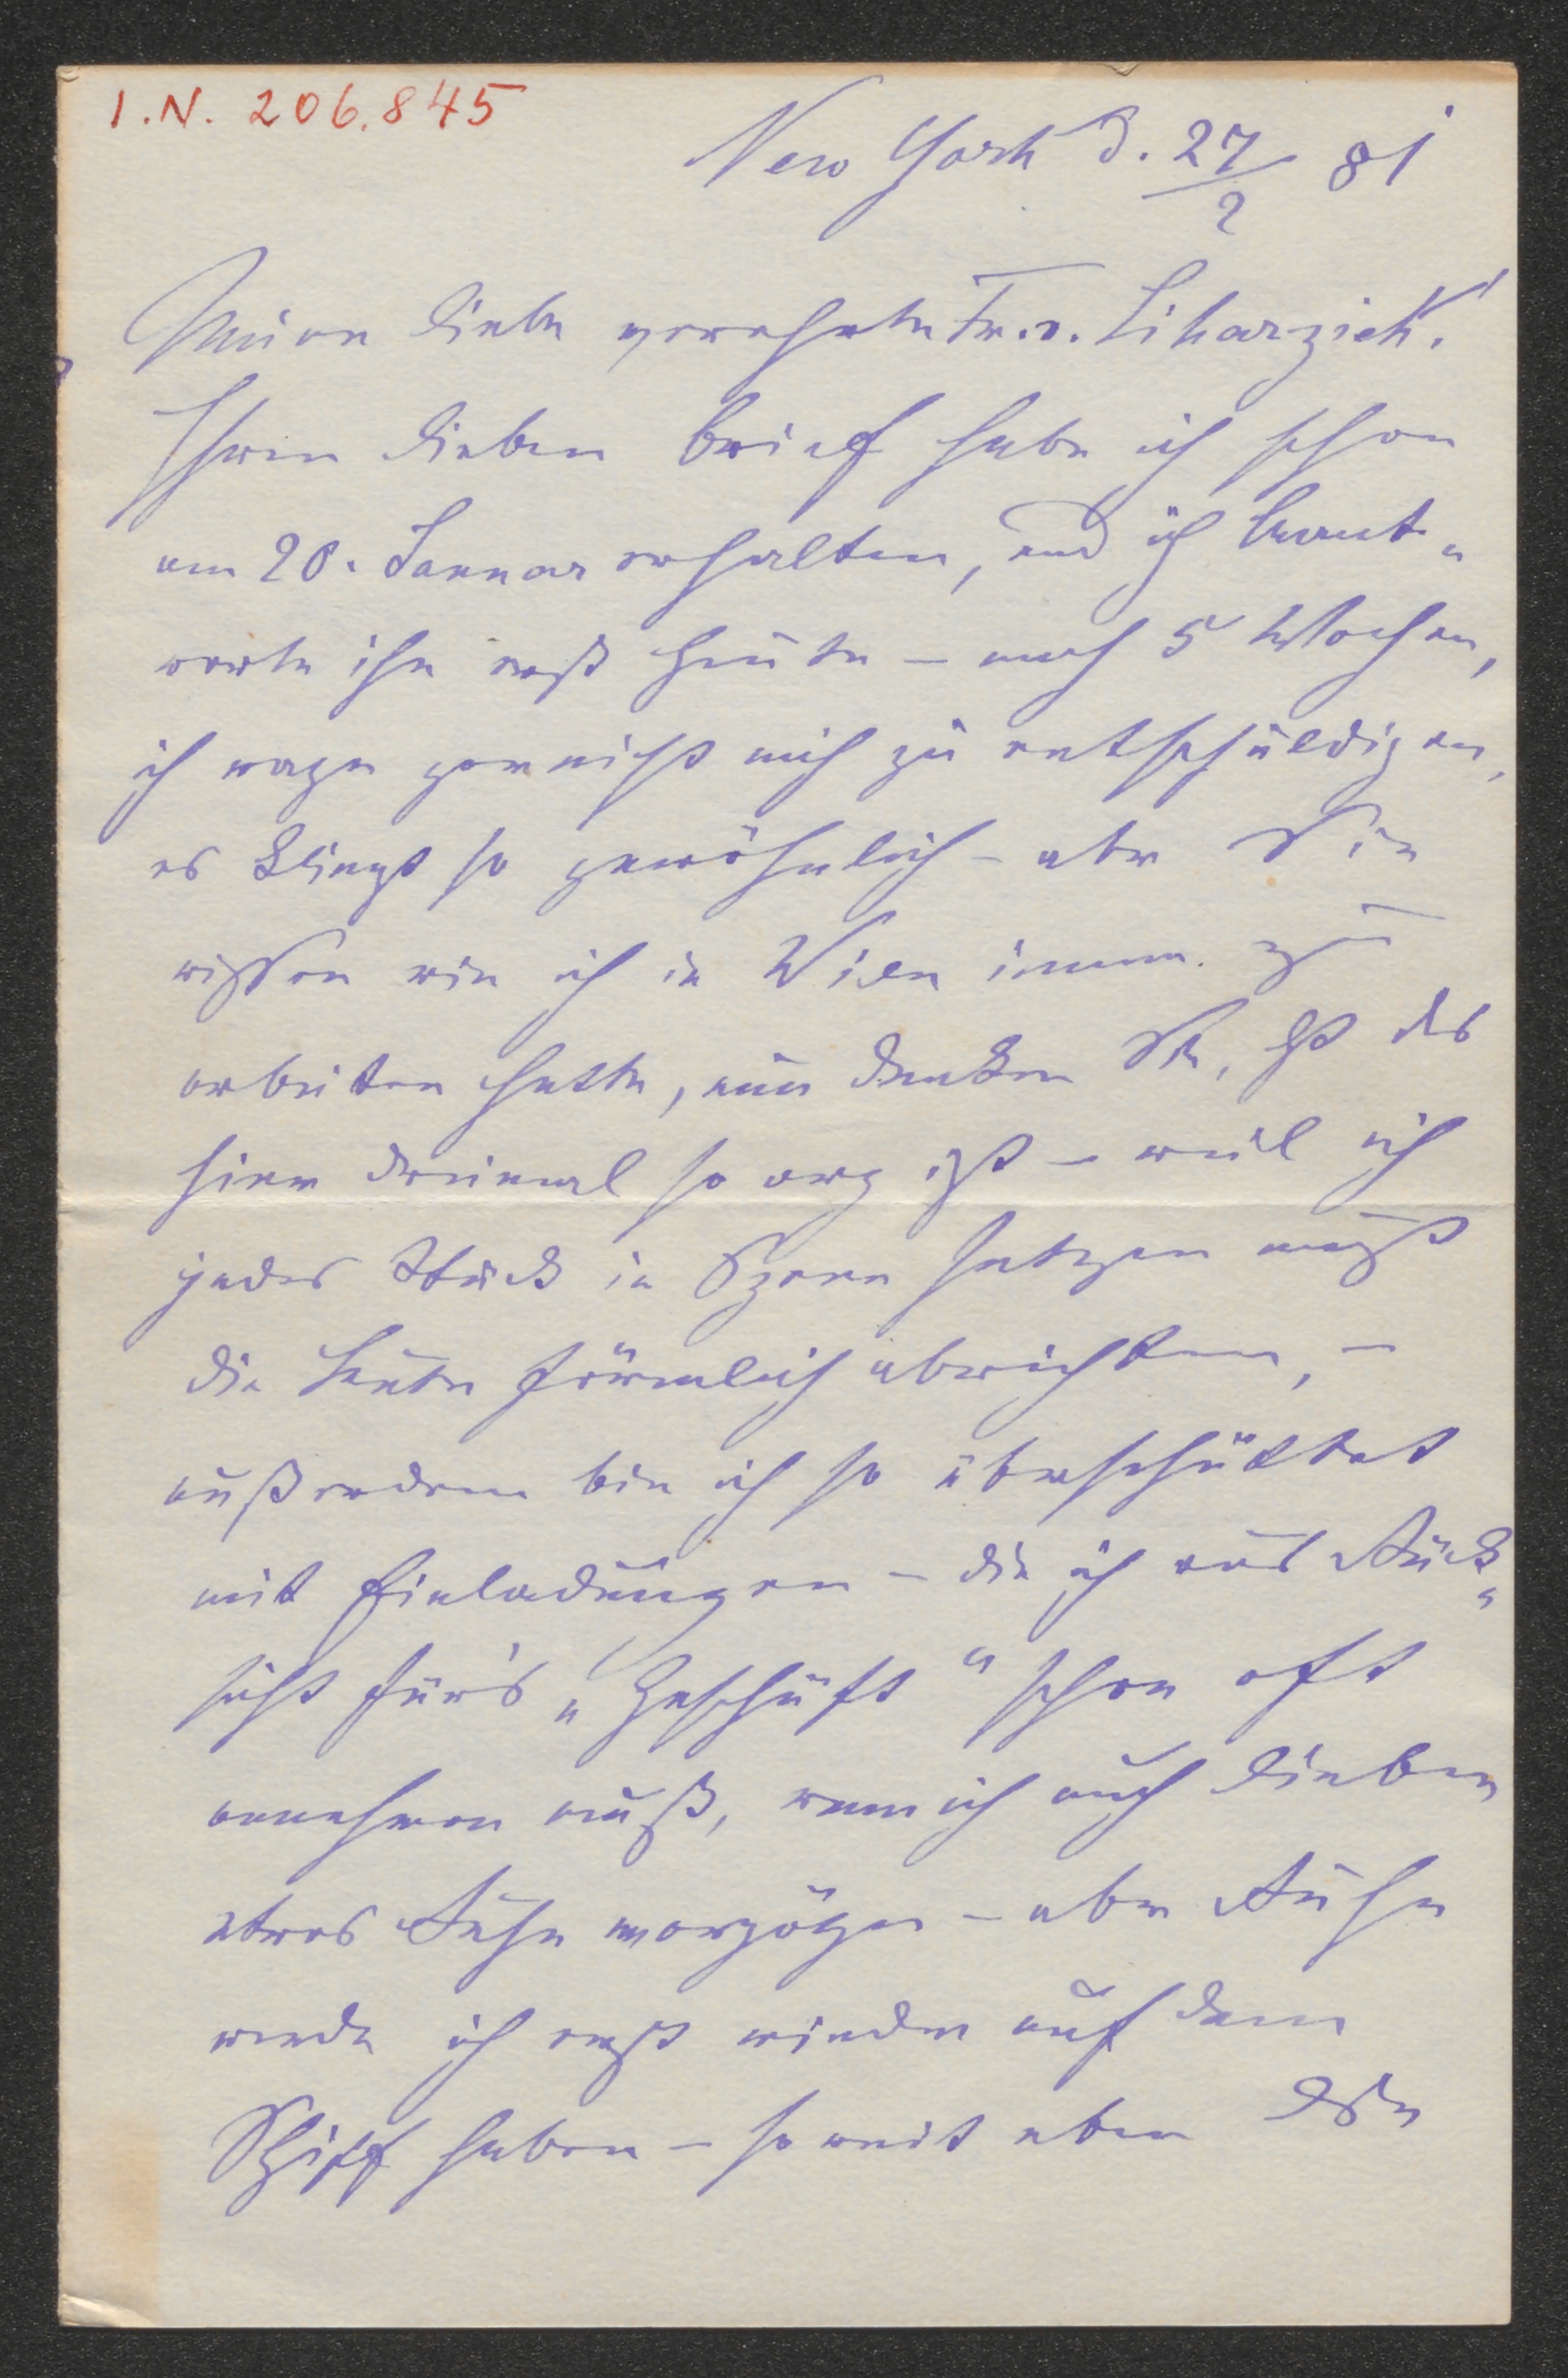 I.N. 206.845
New York d. 27/2 81
Meine liebe verehrte Fr. v. Liharzick!
Ihren lieben Brief habe ich schon
am 20. Januar erhalten, und ich beant-
worte ihn erst heute – nach 5 Wochen,
ich wage gar nicht mich zu entschuldigen,
es klingt so gewöhnlich – aber Sie
wissen wie ich in Wien immer zu
arbeiten hatte, nun denken Sie, daß das
hier dreimal so arg ist – weil ich
jedes Stück in Szene setzen muß
die Leute förmlich abrichten, –
außerdem bin ich so überschüttet
mit Einladungen – die ich aus Rück-
sicht für's „Geschäft“ schon oft
annehmen muß, wenn ich auch lieber
etwas Ruhe vorzöge – aber Ruhe
werde ich erst wieder auf dem
Schiff haben – so weit eben